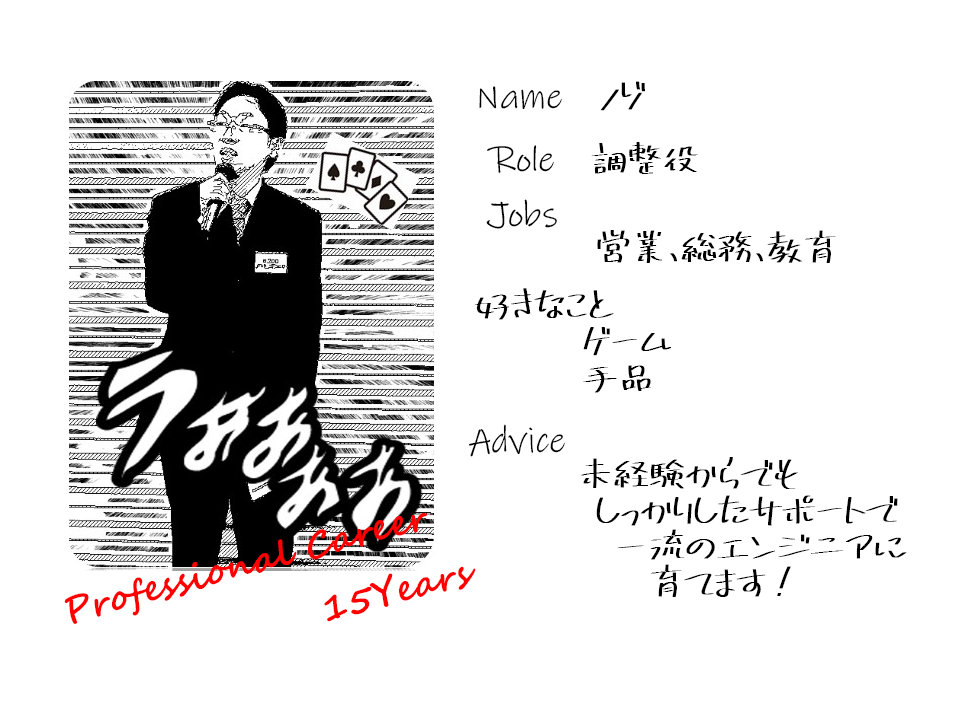 Name ノゾ
Role 調整役
Jobs
営業、総務、教育
好きなこと
ゲーム
手品
Advice
未経験からでも
しっかりしたサポートで
一流のエンジニアに
育てます！
うおおおお
Professional Career
15Years